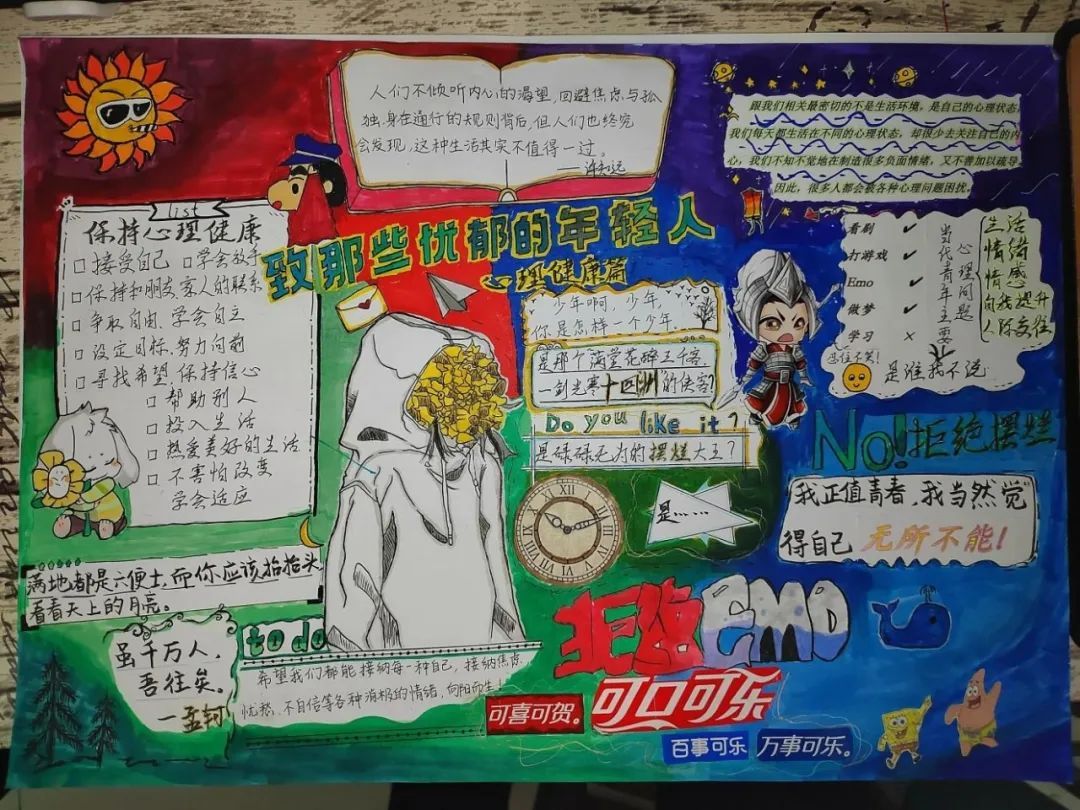 人们不倾听内心的渴望,回避焦虑与孤
独,身在通行的规则背后,但人们也终究
会发现,这种生活其实不值得一过。
跟我们相关最密切的不是生活环境,是自己的心理状态,
我们每天都生活在不同的心理状态,却很少去关注自己的内
心,我们不知不觉在制造很多负面情绪,又不善加以疏导,
因此,很多人都会被各种心理问题困扰。
致那些忧郁的年轻人
心理健康篇
list
保持心理健康
接受自己 学会放手
保持和朋友,家人的联系
争取自由,学会自立
设定目标,努力向前
寻找希望 保持信心
帮助别人
投入生活
热爱美好的生活
不害怕改变
学会适应
少年啊,少年,
你是怎样一个少年.
是那个满堂花醉三千客
一剑光寒十四洲的侠客?
Do you like it?
是碌碌无为的摆烂大王?
是……
看剧 ✓
打游戏 ✓
Emo ✓
做梦 ✓
学习 ×
忍住不笑!
当代青年主要
心理问题
生活
情绪
情感
自我提升
人际交往
是谁我不说
No!拒绝摆烂
“我正值青春,我当然觉
得自己 无所不能!
满地都是六便士,而你应该抬抬头
看看天上的月亮。
虽千万人,
吾往矣。
—孟轲
to do
希望我们都能接纳每一种自己,接纳焦虑
忧愁、不自信等各种消极的情绪,向阳而生!
拒绝EMO
可喜可贺。
可口可乐
百事可乐
万事可乐。
XII